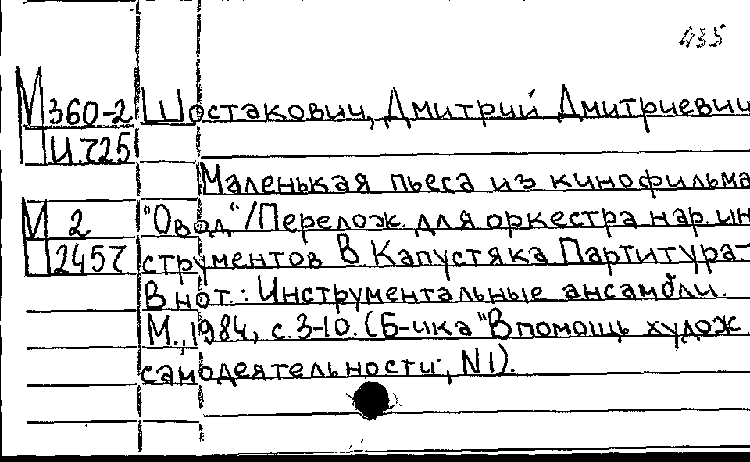 435
М360-2 Шостакович, Дмитрий Дмитриевич
И725
Маленькая пьеса из кинофильма
М 2 "Овод"/Перелож. для оркестра нар. ин
2457 струментов В Капустяка Партитура-
В нот.: Инструментальные ансамбли.
М., 1984, с. 3-10. (Б-чка "В помощь худож
самодеятельности", N1).